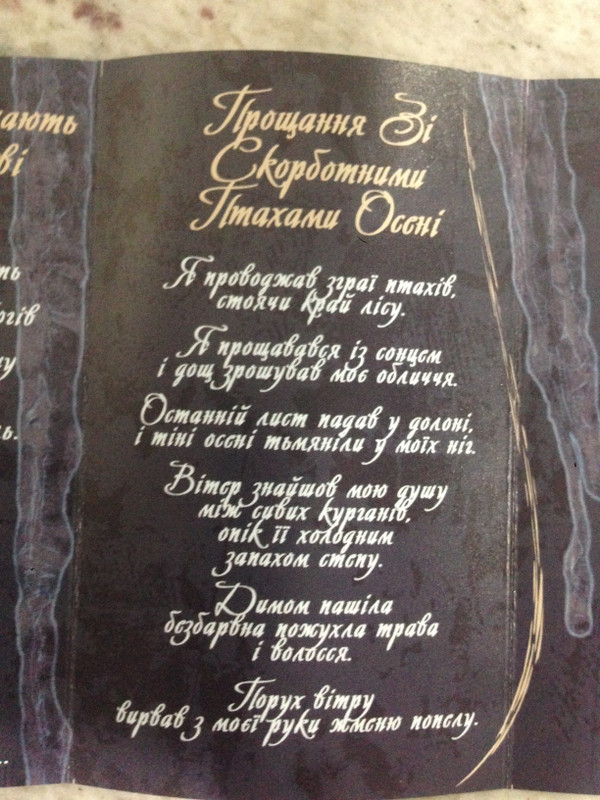 ають
ві
ть
огів
у
ь.
..
Прощання Зі
Скорботними
Птахами Осені
Я проводжав зграї птахів,
стоячи край лісу.
Я прощавався із сонцем
і дощ зрошував моє обличчя.
Останній лист падав у долоні,
і тіні осені тьмяніли у моїх ніг.
Вітер знайшов мою душу
між сивих курганів,
опік її холодним
запахом степу.
Димом пашіла
безбарвна пожухла трава
і волосся.
Порух вітру
вирвав з моєї руки жменю попелу.